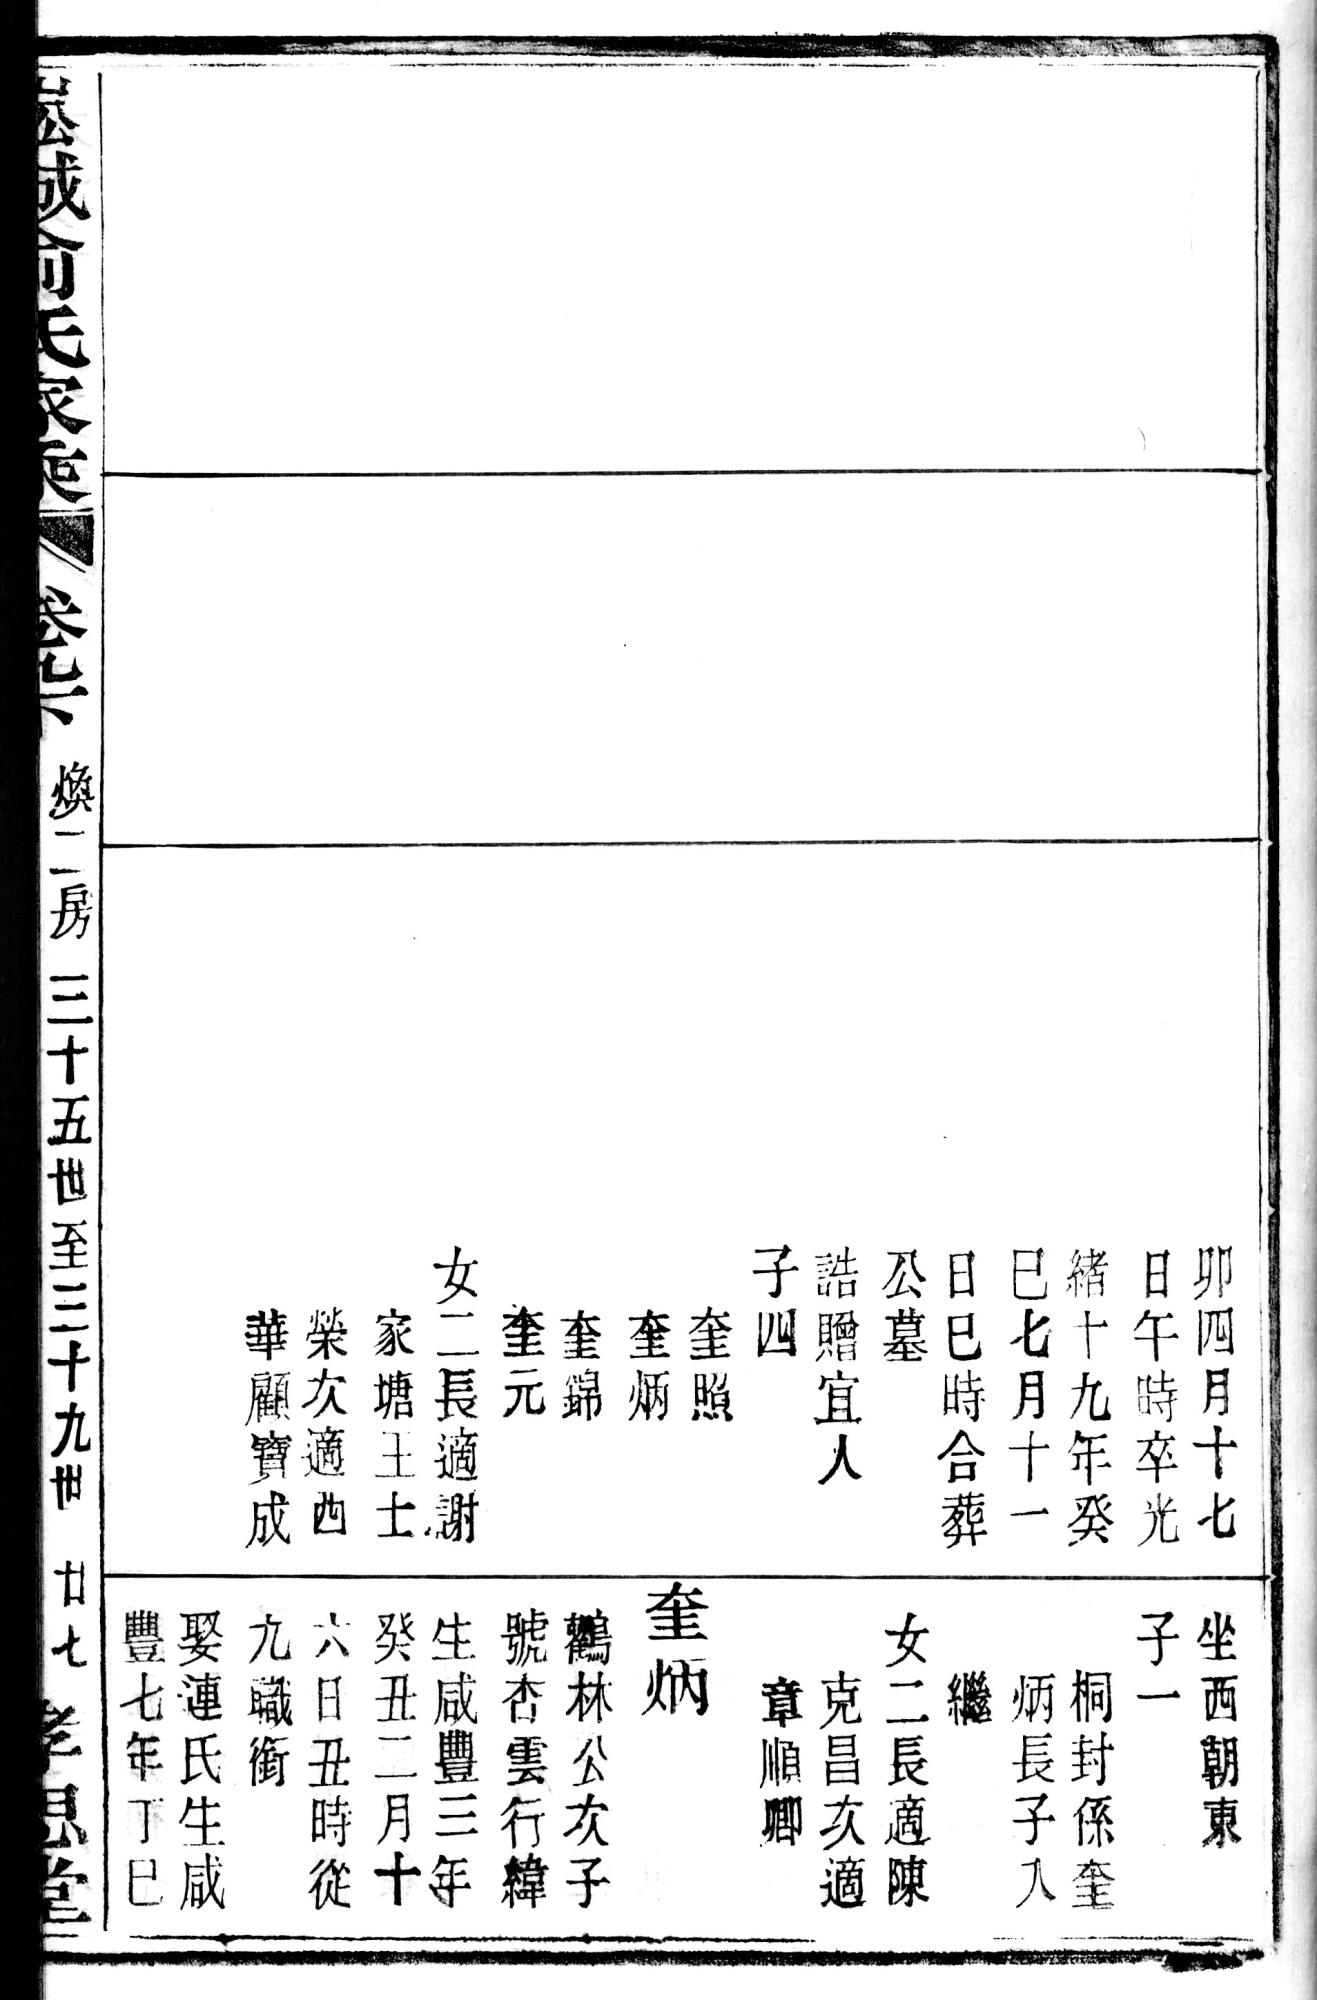 卯四月十七
日午時卒光
緒十九年癸
巳七月十一
日巳時合葬
公墓
誥贈宜人
子四
奎照
奎炳
奎錦
奎元
女二長適謝
家塘王士
榮次適西
華顧寶成
坐西朝東
子一
桐封係奎
炳長子入
繼
女二長適陳
克昌次適
章順卿
奎炳
鶴林公次子
號杏雲行緯
生咸豐三年
癸丑二月十
六日丑時從
九職銜
娶連氏生咸
豐七年丁巳
崧城俞氏家乘 卷九下 煥二房 三十五世至三十九世 廿七 孝思堂